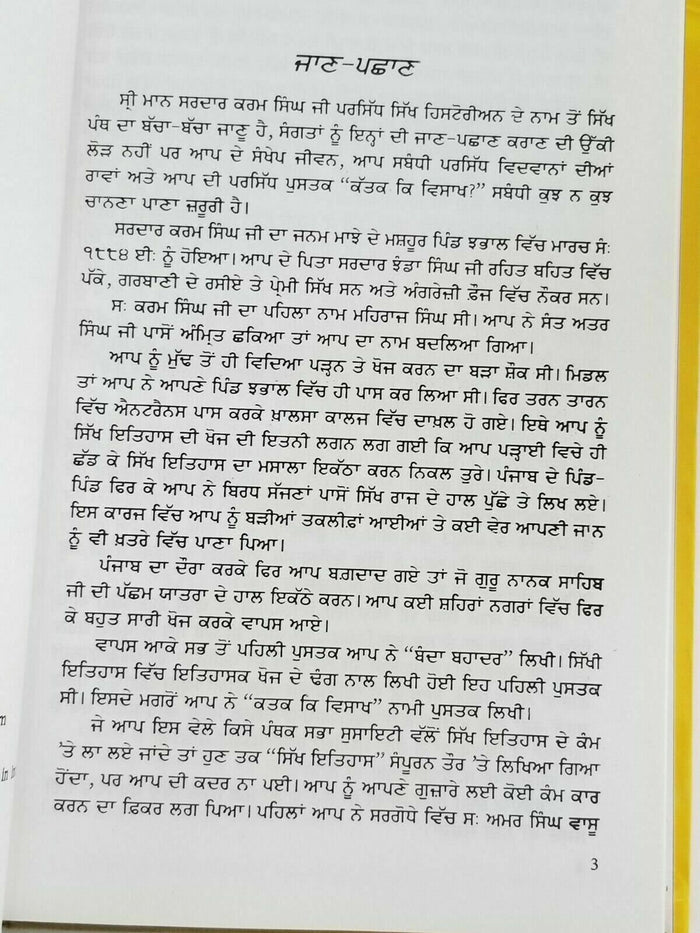 ਜਾਣ-ਪਛਾਣ
ਸ੍ਰੀ ਮਾਨ ਸਰਦਾਰ ਕਰਮ ਸਿੰਘ ਜੀ ਪਰਸਿੱਧ ਸਿੱਖ ਹਿਸਟੋਰੀਅਨ ਦੇ ਨਾਮ ਤੋਂ ਸਿੱਖ
ਪੰਥ ਦਾ ਬੱਚਾ-ਬੱਚਾ ਜਾਣੂ ਹੈ, ਸੰਗਤਾਂ ਨੂੰ ਇਨ੍ਹਾਂ ਦੀ ਜਾਣ-ਪਛਾਣ ਕਰਾਣ ਦੀ ਉੱਕੀ
ਲੋੜ ਨਹੀਂ ਪਰ ਆਪ ਦੇ ਸੰਖੇਪ ਜੀਵਨ, ਆਪ ਸਬੰਧੀ ਪਰਸਿੱਧ ਵਿਦਵਾਨਾਂ ਦੀਆਂ
ਰਾਵਾਂ ਅਤੇ ਆਪ ਦੀ ਪਰਸਿੱਧ ਪੁਸਤਕ “ਕੱਤਕ ਕਿ ਵਿਸਾਖ?” ਸਬੰਧੀ ਕੁਝ ਨ ਕੁਝ
ਚਾਨਣਾ ਪਾਣਾ ਜ਼ਰੂਰੀ ਹੈ।
ਸਰਦਾਰ ਕਰਮ ਸਿੰਘ ਜੀ ਦਾ ਜਨਮ ਮਾਝੇ ਦੇ ਮਸ਼ਹੂਰ ਪਿੰਡ ਝਭਾਲ ਵਿੱਚ ਮਾਰਚ ਸੰ:
੧੮੮੪ ਈ: ਨੂੰ ਹੋਇਆ। ਆਪ ਦੇ ਪਿਤਾ ਸਰਦਾਰ ਝੰਡਾ ਸਿੰਘ ਜੀ ਰਹਿਤ ਬਹਿਤ ਵਿੱਚ
ਪੱਕੇ, ਗਰਬਾਣੀ ਦੇ ਰਸੀਏ ਤੇ ਪ੍ਰੇਮੀ ਸਿੱਖ ਸਨ ਅਤੇ ਅੰਗਰੇਜ਼ੀ ਫ਼ੌਜ ਵਿੱਚ ਨੌਕਰ ਸਨ।
ਸ: ਕਰਮ ਸਿੰਘ ਜੀ ਦਾ ਪਹਿਲਾ ਨਾਮ ਮਹਿਰਾਜ ਸਿੰਘ ਸੀ। ਆਪ ਨੇ ਸੰਤ ਅਤਰ
ਸਿੰਘ ਜੀ ਪਾਸੋਂ ਅੰਮ੍ਰਿਤ ਛਕਿਆ ਤਾਂ ਆਪ ਦਾ ਨਾਮ ਬਦਲਿਆ ਗਿਆ।
ਆਪ ਨੂੰ ਮੁੱਢ ਤੋਂ ਹੀ ਵਿਦਿਆ ਪੜ੍ਹਨ ਤੇ ਖੋਜ ਕਰਨ ਦਾ ਬੜਾ ਸ਼ੌਕ ਸੀ। ਮਿਡਲ
ਤਾਂ ਆਪ ਨੇ ਆਪਣੇ ਪਿੰਡ ਝਭਾਲ ਵਿੱਚ ਹੀ ਪਾਸ ਕਰ ਲਿਆ ਸੀ। ਫਿਰ ਤਰਨ ਤਾਰਨ
ਵਿੱਚ ਐਨਟਰੈਨਸ ਪਾਸ ਕਰਕੇ ਖ਼ਾਲਸਾ ਕਾਲਜ ਵਿੱਚ ਦਾਖ਼ਲ ਹੋ ਗਏ। ਇਥੇ ਆਪ ਨੂੰ
ਸਿੱਖ ਇਤਿਹਾਸ ਦੀ ਖੋਜ ਦੀ ਇਤਨੀ ਲਗਨ ਲਗ ਗਈ ਕਿ ਆਪ ਪੜ੍ਹਾਈ ਵਿਚੇ ਹੀ
ਛੱਡ ਕੇ ਸਿੱਖ ਇਤਿਹਾਸ ਦਾ ਮਸਾਲਾ ਇਕੱਠਾ ਕਰਨ ਨਿਕਲ ਤੁਰੇ। ਪੰਜਾਬ ਦੇ ਪਿੰਡ-
ਪਿੰਡ ਫਿਰ ਕੇ ਆਪ ਨੇ ਬਿਰਧ ਸੱਜਣਾਂ ਪਾਸੋਂ ਸਿੱਖ ਰਾਜ ਦੇ ਹਾਲ ਪੁੱਛੇ ਤੇ ਲਿਖ ਲਏ।
ਇਸ ਕਾਰਜ ਵਿੱਚ ਆਪ ਨੂੰ ਬੜੀਆਂ ਤਕਲੀਫ਼ਾਂ ਆਈਆਂ ਤੇ ਕਈ ਵੇਰ ਆਪਣੀ ਜਾਨ
ਨੂੰ ਵੀ ਖ਼ਤਰੇ ਵਿੱਚ ਪਾਣਾ ਪਿਆ।
ਪੰਜਾਬ ਦਾ ਦੌਰਾ ਕਰਕੇ ਫਿਰ ਆਪ ਬਗ਼ਦਾਦ ਗਏ ਤਾਂ ਜੋ ਗੁਰੂ ਨਾਨਕ ਸਾਹਿਬ
ਜੀ ਦੀ ਪੱਛਮ ਯਾਤਰਾ ਦੇ ਹਾਲ ਇਕੱਠੇ ਕਰਨ। ਆਪ ਕਈ ਸ਼ਹਿਰਾਂ ਨਗਰਾਂ ਵਿੱਚ ਫਿਰ
ਕੇ ਬਹੁਤ ਸਾਰੀ ਖੋਜ ਕਰਕੇ ਵਾਪਸ ਆਏ।
ਵਾਪਸ ਆਕੇ ਸਭ ਤੋਂ ਪਹਿਲੀ ਪੁਸਤਕ ਆਪ ਨੇ “ਬੰਦਾ ਬਹਾਦਰ” ਲਿਖੀ। ਸਿੱਖੀ
ਇਤਿਹਾਸ ਵਿੱਚ ਇਤਿਹਾਸਕ ਖੋਜ ਦੇ ਢੰਗ ਨਾਲ ਲਿਖੀ ਹੋਈ ਇਹ ਪਹਿਲੀ ਪੁਸਤਕ
ਸੀ। ਇਸਦੇ ਮਗਰੋਂ ਆਪ ਨੇ “ਕਤਕ ਕਿ ਵਿਸਾਖ” ਨਾਮੀ ਪੁਸਤਕ ਲਿਖੀ।
ਜੇ ਆਪ ਇਸ ਵੇਲੇ ਕਿਸੇ ਪੰਥਕ ਸਭਾ ਸੁਸਾਇਟੀ ਵੱਲੋਂ ਸਿੱਖ ਇਤਿਹਾਸ ਦੇ ਕੰਮ
’ਤੇ ਲਾ ਲਏ ਜਾਂਦੇ ਤਾਂ ਹੁਣ ਤਕ “ਸਿੱਖ ਇਤਿਹਾਸ” ਸੰਪੂਰਨ ਤੌਰ ’ਤੇ ਲਿਖਿਆ ਗਿਆ
ਹੋਂਦਾ, ਪਰ ਆਪ ਦੀ ਕਦਰ ਨਾ ਪਈ। ਆਪ ਨੂੰ ਆਪਣੇ ਗੁਜ਼ਾਰੇ ਲਈ ਕੋਈ ਕੰਮ ਕਾਰ
ਕਰਨ ਦਾ ਫ਼ਿਕਰ ਲਗ ਪਿਆ। ਪਹਿਲਾਂ ਆਪ ਨੇ ਸਰਗੋਧੇ ਵਿੱਚ ਸ: ਅਮਰ ਸਿੰਘ ਵਾਸੂ
3